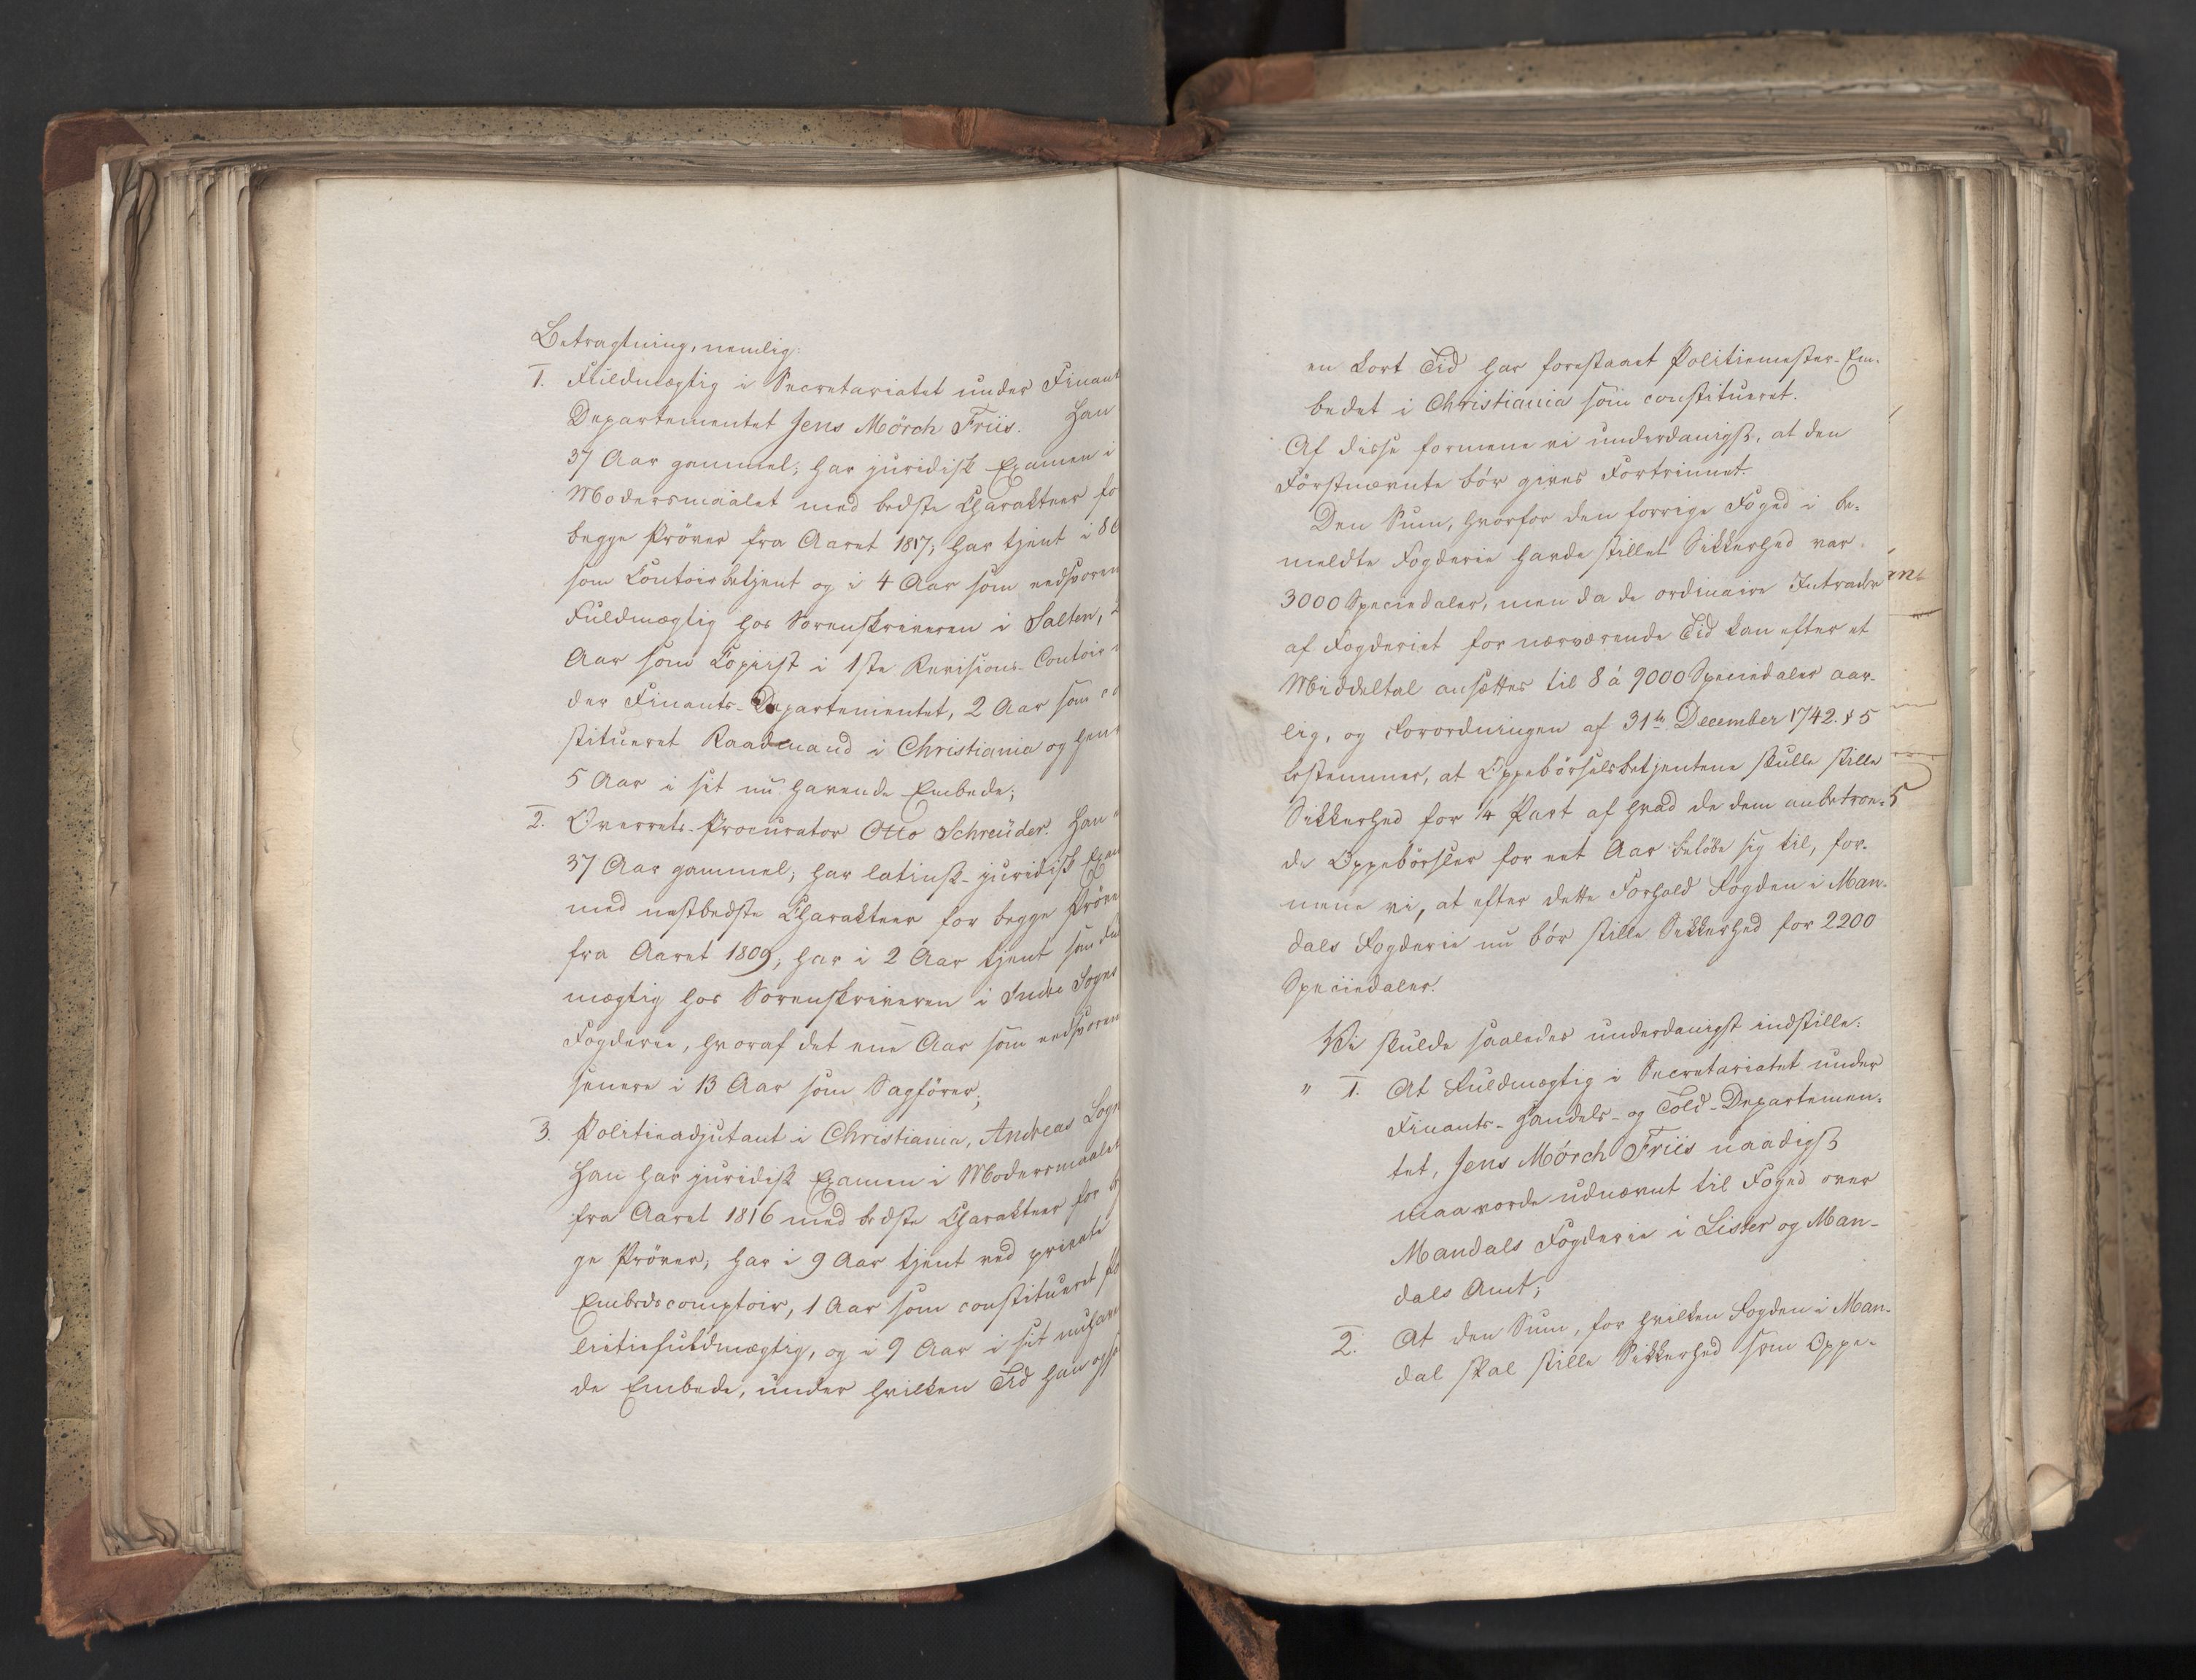 Betragtning, nemlig:
1. Fuldmægtig i Secretariatet under Finant
Departementet Jens Mörch Friis. Han
37 Aar gammel; har juridisk Examen i
Modersmaalet med bedste Charakteer fo
begge Pröver fra Aaret 1817; har tjent i 8
som Contoirbetjent og i 4 Aar som eedsvoren
Fuldmægtig hos Sorenskriveren i Salten,
Aar som Copiist i 1ste Revisions-Contoir
der Finants-Departementet, 2 Aar som co
stitueret Raadmand i Christiania og hen
5 Aar i sit nu havende Embede;
2. Overrets-Procurator Otto Schreüder. Han
37 Aar gammel; har latinsk-juridisk Exam
med næstbedste Charakteer for begge Pröve
fra Aaret 1809; har i 2 Aar tjent som Ful
mægtig hos Sorenskriveren i Indre Sogns
Fogderie, hvoraf det ene Aar som eedsvoren
senere i 13 Aar som Sagförer;
3. Politieadjutant i Christiania, Andreas Logn
Han har juridisk Examen i Modersmaalet
fra Aaret 1816 med bedste Charakteer for b
ge Pröver; har i 9 Aar tjent ved private
Embedscomptoir, 1 Aar som constitueret Po
lietiefuldmægtig, og i 9 Aar i sit nuhave
de Embede, under hvilken Tid han ogsa
en kort Tid har forestaaet Politiemester-Em-
bedet i Christiania som constitueret.
Af disse formene vi underdanigst, at den
Förstnævnte bör gives Fortrinnet.
Den Sum, hvorfor den forrige Foged i be-
meldte Fogderie havde stillet Sikkerhed var
3000 Speciedaler, men da de ordinaire Intrader
af Fogderiet for nærværende Tid kan efter et
Middeltal ansættes til 8 á 9000 Speciedaler aar-
lig, og Forordningen af 31te December 1742. § 5
bestemmer, at Oppebörselsbetjentene skulle stille
Sikkerhed for 1/4 Part af hvad de dem anbetroe-
de Oppebörsler for eet Aar belöbe sig til, for-
mene vi, at efter dette Forhold Fogden i Man-
dals Fogderie nu bör stille Sikkerhed for 2200
Speciedaler.
Vi skulde saaledes underdanigst indstille:
" 1. At Fuldmægtig i Secretariatet under
Finants- Handels- og Told-Departemen-
tet, Jens Mörch Friis naadigst
maa vorde udnævnt til Foged over
Mandals Fogderie i Lister og Man-
dals Amt;
2. At den Sum, for hvilken Fogden i Man-
dal skal stille Sikkerhed som Oppe-